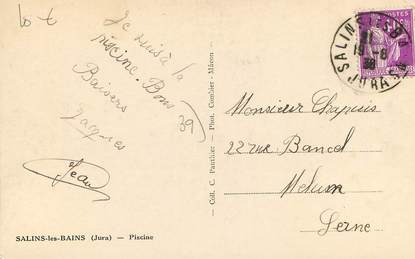 10 €
Je suis à la
piscine. Bons
Baisers
Jacques
39
Jean
SALINS-les-BAINS (Jura) — Piscine
Coll. C. Panthier — Phot. Combier - Mâcon
POSTES
SALINS
19-8
39
JURA
Monsieur Chapuis
22 rue Bancel
Melun